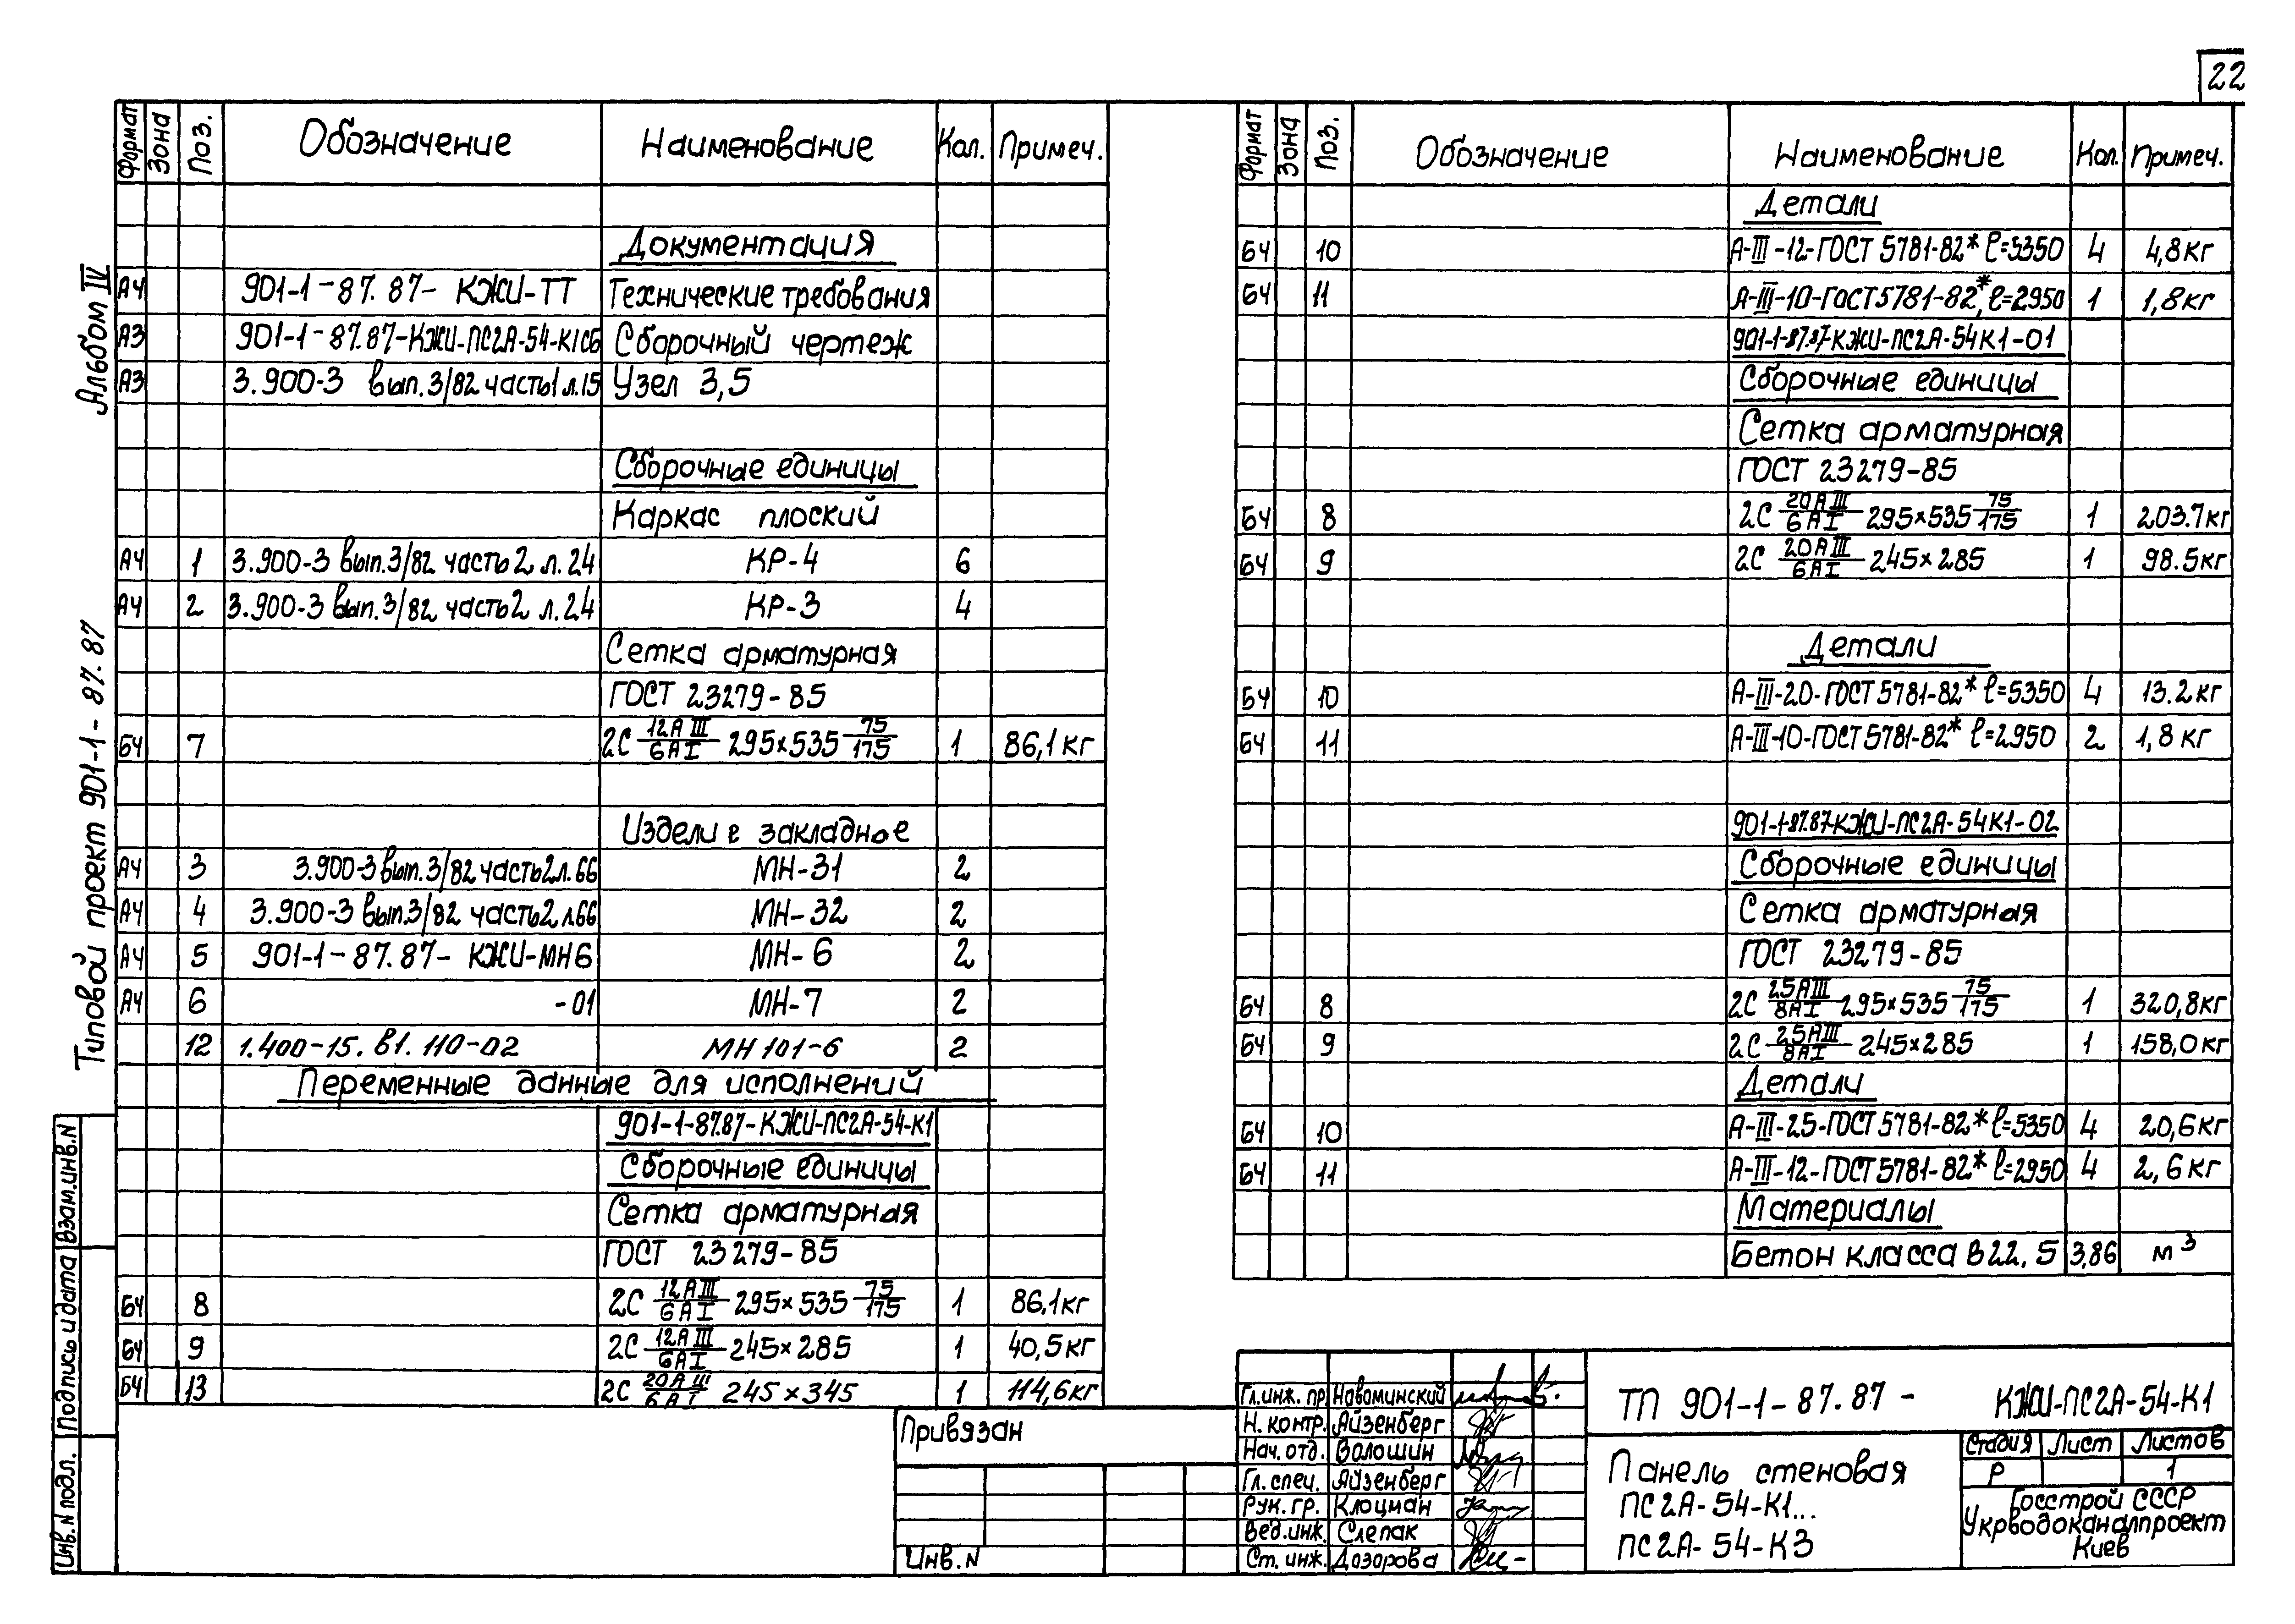 22
Альбом IV
Типовой проект 901-1-87.87
Взам.инв.N
Подпись и дата
Инв.N подл.
Формат Зона Поз. Обозначение Наименование Кол. Примеч.
Документация
А4 901-1-87.87- КЖИ-ТТ Технические требования
А3 901-1-87.87-КЖИ-ПС2А-54-К1СБ Сборочный чертеж
А3 3.900-3 вып.3/82 часть1 л.15 Узел 3,5
Сборочные единицы
Каркас плоский
А4 1 3.900-3 вып.3/82 часть 2 л.24 КР-4 6
А4 2 3.900-3 вып.3/82 часть2 л.24 КР-3 4
Сетка арматурная
ГОСТ 23279-85
БЧ 7 2С 12АIII/6АI 295×535 75/175 1 86,1кг
Изделие закладное
А4 3 3.900-3 вып.3/82 часть2 л.66 МН-31 2
А4 4 3.900-3 вып.3/82 часть2 л.66 МН-32 2
А4 5 901-1-87.87- КЖИ-МН6 МН-6 2
А4 6 -01 МН-7 2
12 1.400-15. в1. 110-02 МН 101-6 2
Переменные данные для исполнений
901-1-87.87-КЖИ-ПС2А-54-К1
Сборочные единицы
Сетка арматурная
ГОСТ 23279-85
БЧ 8 2С 12АIII/6АI 295×535 75/175 1 86,1кг
БЧ 9 2С 12АIII/6АI 245×285 1 40,5кг
БЧ 13 2С 20АIII/6АI 245×345 1 114,6кг
Формат Зона Поз. Обозначение Наименование Кол. Примеч.
Детали
БЧ 10 А-III-12-ГОСТ 5781-82* ℓ=5350 4 4,8кг
БЧ 11 А-III-10-ГОСТ5781-82*, ℓ=2950 1 1,8кг
901-1-87.87-КЖИ-ПС2А-54К1-01
Сборочные единицы
Сетка арматурная
ГОСТ 23279-85
БЧ 8 2С 20АIII/6АI 295×535 75/175 1 203.7кг
БЧ 9 2С 20АIII/6АI 245×285 1 98.5кг
Детали
БЧ 10 А-III-20-ГОСТ 5781-82* ℓ=5350 4 13.2кг
БЧ 11 А-III-10-ГОСТ5781-82* ℓ=2950 2 1,8кг
901-1-87.87-КЖИ-ПС2А-54К1-02
Сборочные единицы
Сетка арматурная
ГОСТ 23279-85
БЧ 8 2С 25АIII/8АI 295×535 75/175 1 320,8кг
БЧ 9 2С 25АIII/8АI 245×285 1 158,0кг
Детали
БЧ 10 А-III-25-ГОСТ5781-82* ℓ=5350 4 20,6кг
БЧ 11 А-III-12-ГОСТ5781-82* ℓ=2950 4 2,6кг
Материалы
Бетон класса В22,5 3,86 м³
Привязан
Инв.N
Гл.инж.пр. Новоминский
Н.контр. Айзенберг
Нач.отд. Волошин
Гл.спец. Айзенберг
Рук.гр. Клоцман
Вед.инж. Слепак
Ст.инж. Дозорова
ТП 901-1-87.87- КЖИ-ПС2А-54-К1
Панель стеновая
ПС2А-54-К1...
ПС2А-54-К3
Стадия Лист Листов
Р 1
Госстрой СССР
Укрводоканалпроект
Киев